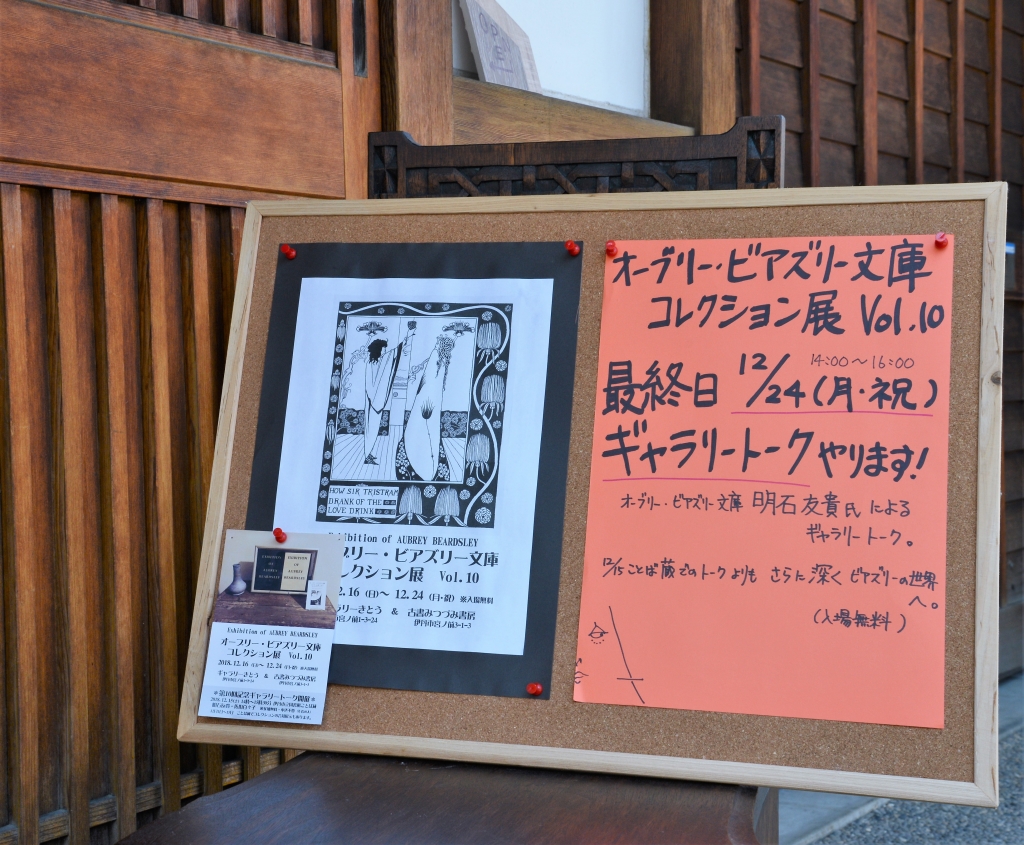 OPEN
HOW SIR TRISTRAM
DRANK OF THE
LOVE DRINK
Exhibition of AUBREY BEARDSLEY
ブリー・ビアズリー文庫
レクション展 Vol.10
2.16 (日)〜 12.24 (月・祝) ※入場無料
ラリーきとう & 古書みつづみ書房
伊丹市宮ノ前3-1-3
Exhibition of AUBREY BEARDSLEY
オーブリー・ビアズリー文庫
コレクション展 Vol.10
2018.12.16 (日)〜 12.24 (月・祝) ※入場無料
ギャラリーきとう & 古書みつづみ書房
※第10回記念ギャラリートーク開催※
オーブリー・ビアズリー文庫
コレクション展 Vol.10
最終日 12/24(月・祝) 14:00〜16:00
ギャラリートークやります!
オーブリー・ビアズリー文庫 明石友貴氏による
ギャラリートーク。
12/15ことば蔵でのトークよりも さらに深くビアズリーの世界
へ。
(入場無料)